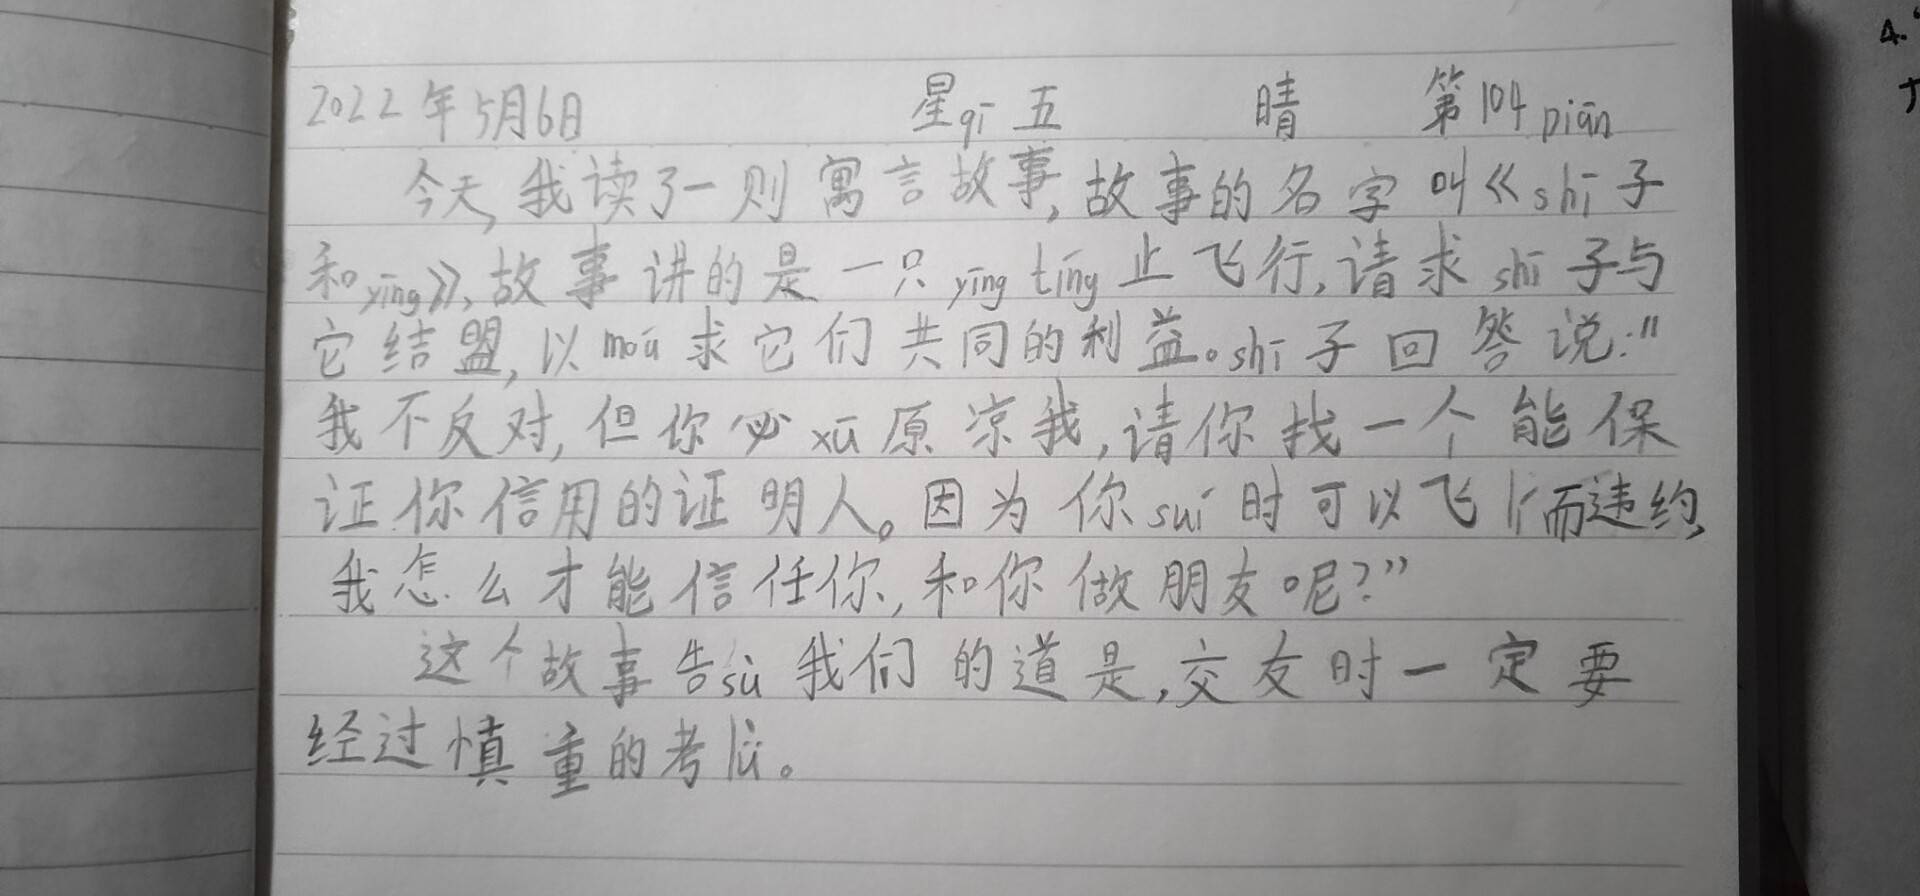 2022年5月6日 星qī五 晴 第104piān
今天,我读了一则寓言故事,故事的名字叫《shī子
和yīng》,故事讲的是一只yīng tíng止飞行,请求shī子与
它结盟,以móu求它们共同的利益。shī子回答说:"
我不反对,但你必xū原凉我,请你找一个能保
证你信用的证明人。因为你suí时可以飞lí而违约,
我怎么才能信任你,和你做朋友呢?”
这个故事告sù我们的道是,交友时一定要
经过慎重的考lǜ。
4.